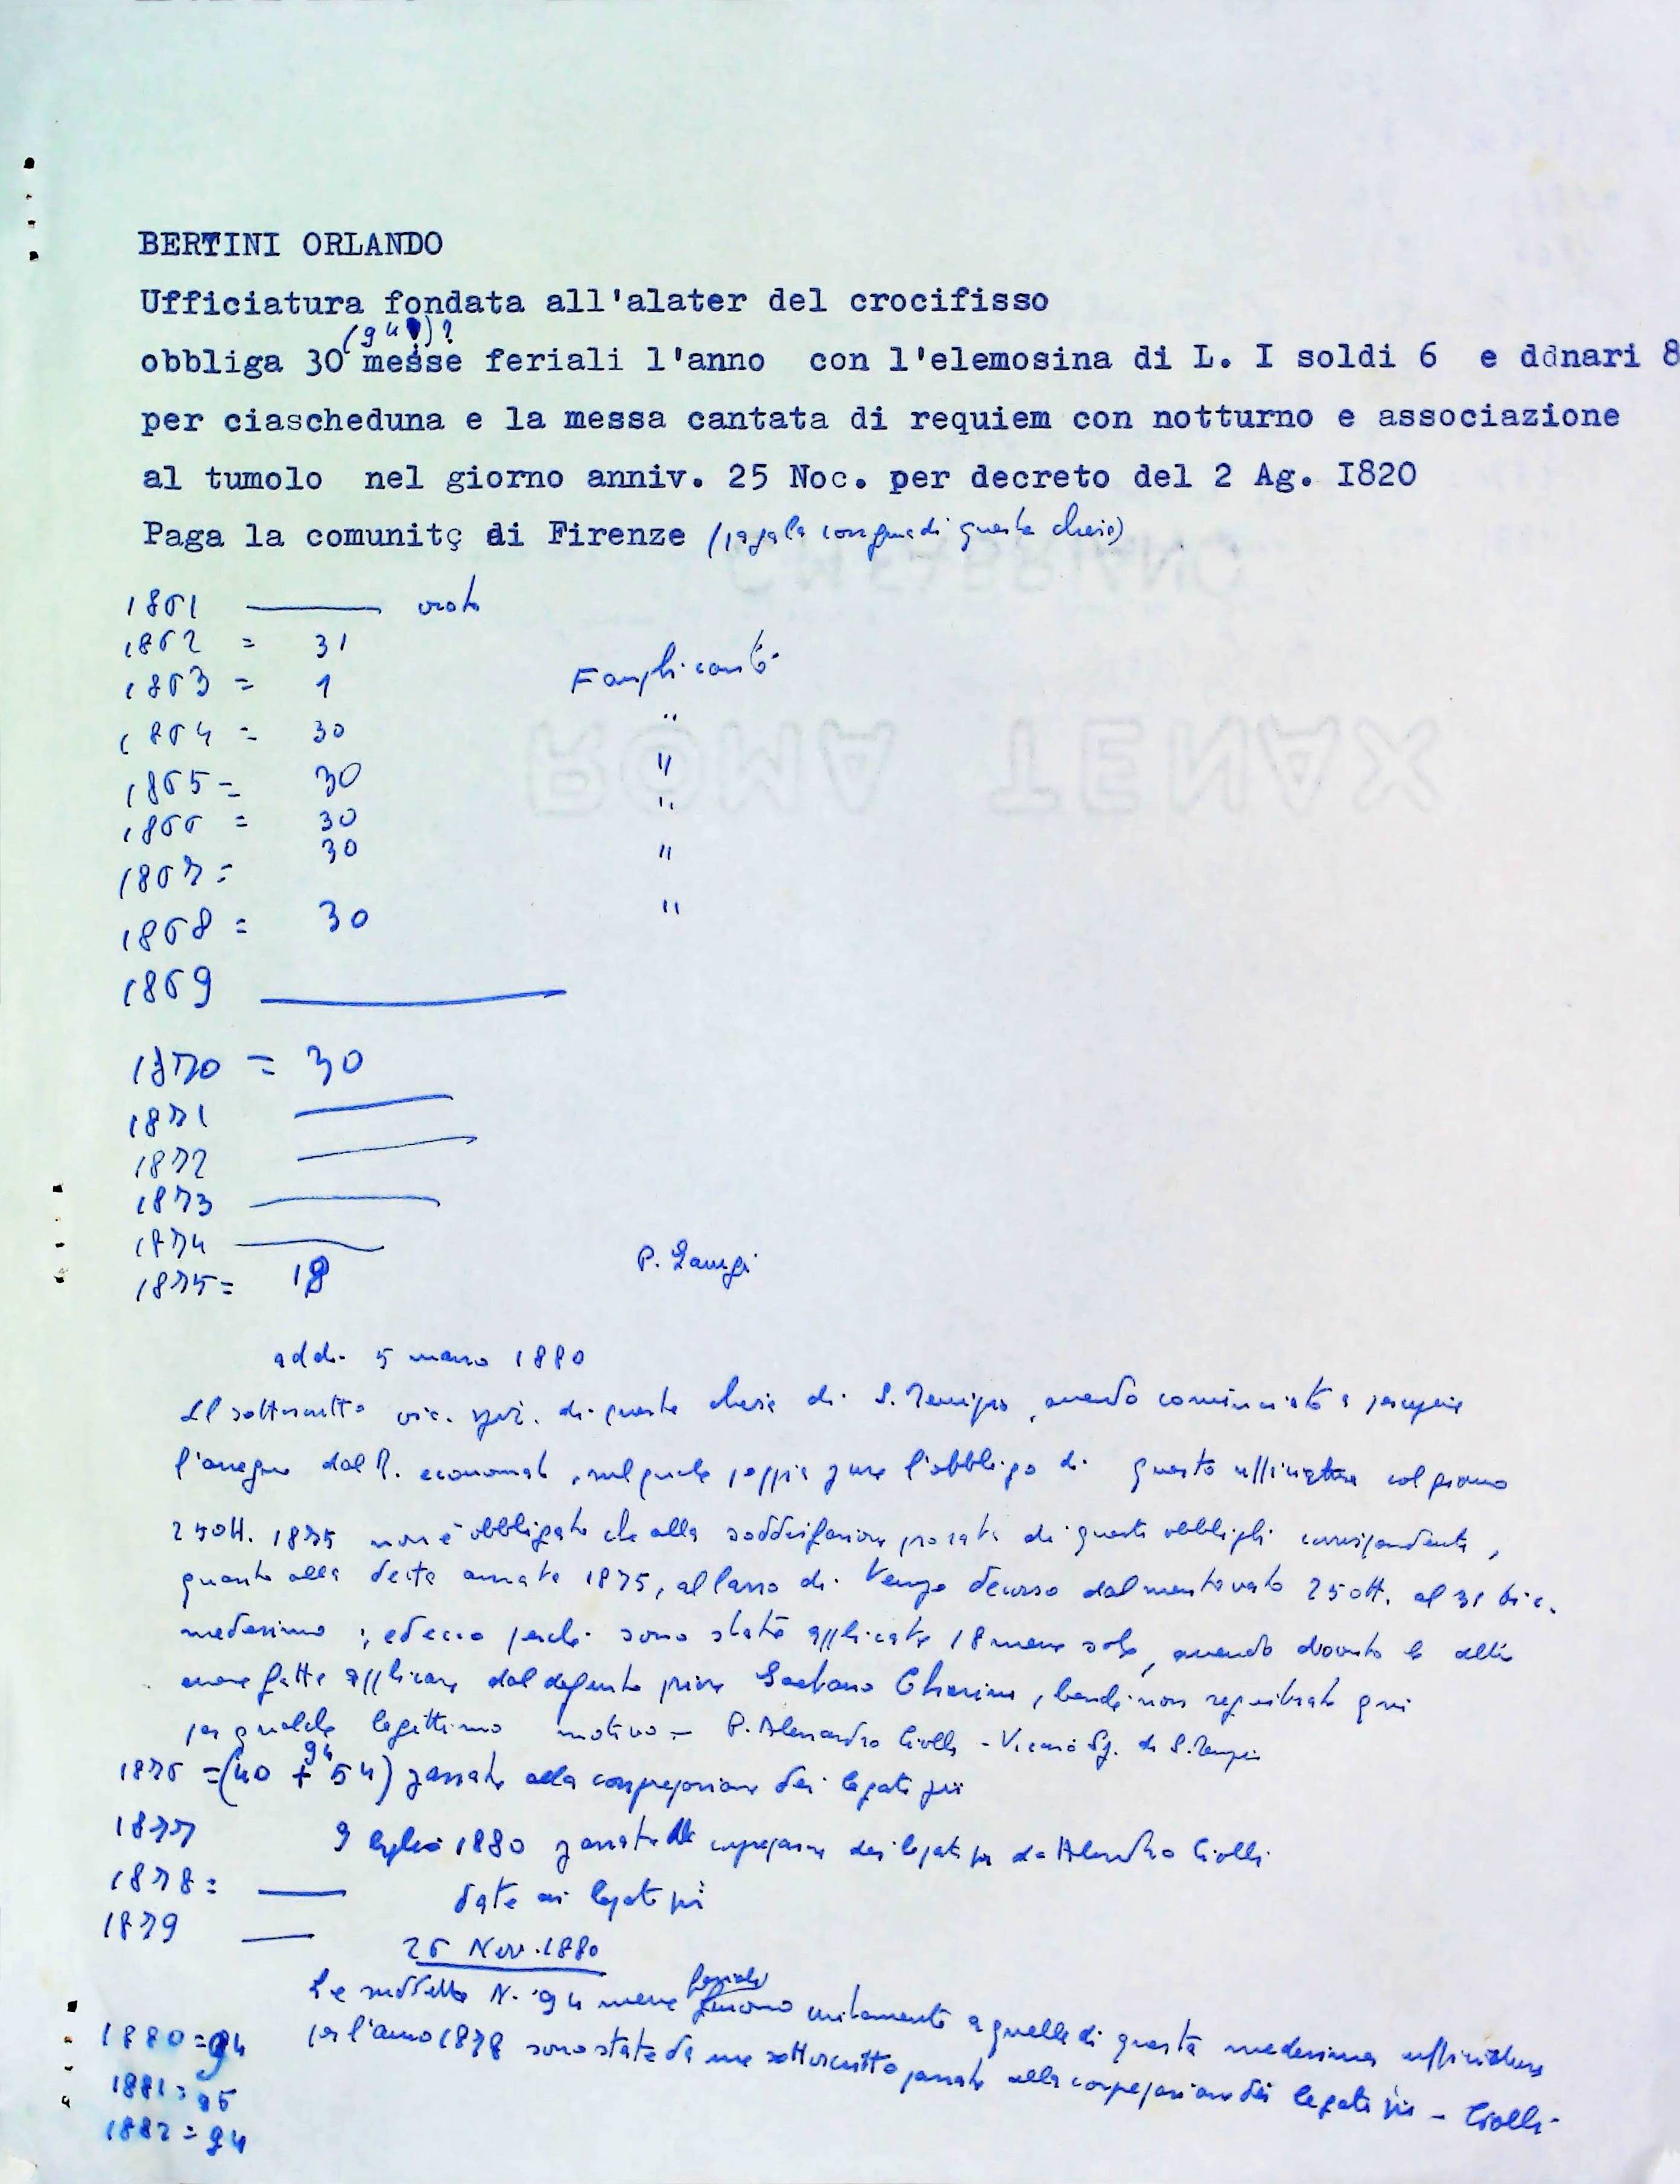 BERTINI ORLANDO
Ufficiatura fondata all'alater del crocifisso
(94)?
obbliga 30 messe feriali l'anno con l'elemosina di L. I soldi 6 e ddnari 8
per ciascheduna e la messa cantata di requiem con notturno e associazione
al tumolo nel giorno anniv. 25 Noc. per decreto del 2 Ag. I820
Paga la comunitç di Firenze ( di questa chiesa)
1861
1862 = 31
1863 = 1
1864 = 30 "
1865 = 30 "
1866 = 30 "
1867 = 30 "
1868 = 30 "
1869
1870 = 30
1871
1872
1873
1874
1875 = 18 P.
addi 5 marzo 1880
Il sottoscritto vic. spir. di questa chiesa di S. Remigio, avendo cominciato a percepire
l'assegno dal R. economato, sul quale poggia pure l'obbligo di questa ufficiatura col giorno
25 Ott. 1875 non è obbligato che alla soddisfazione pro rata di questi obblighi corrispondente,
quanto alla detta annata 1875, al lasso di tempo decorso dal mentovato 25 Ott. al 31 Dic.
medesimo; ed ecco perché sono state applicate 18 messe sole, avendo dovuto le altre
essere fatte applicare dal defunto priore Gaetano, benché non registrate qui
per qualche legittimo motivo = P. Alessandro Ciolli - Vicario Sp. di S. Remigio
94
1876 = (40 + 54) passate alla congregazione dei legati pii
1877 9 luglio 1880 passate alla congregazione dei legati pii da Alessandro Ciolli
1878 = date ai legati pii
1879
26 Nov. 1880
Le suddette N. 94 messe unitamente a quelle di questa medesima ufficiatura
1880 = 94 per l'anno 1878 sono state da me sottoscritto passate alla congregazione dei legati pii - Ciolli
1881 = 95
1882 = 94